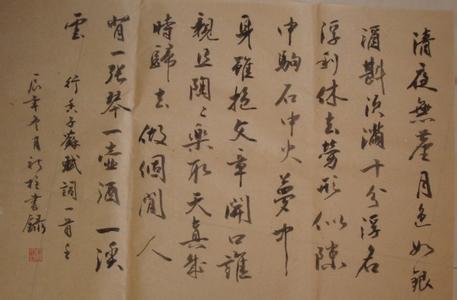 清夜無塵月色如銀
酒斟須滿十分浮名
浮利休去勞形似隙
中駒石中火夢中
身雖抱文章開口誰
親且陶々樂取天真幾
時歸去做個閒人
背一张琴一壺酒一溪
雲
行香子蘇軾詞一首壬
辰年月書錄